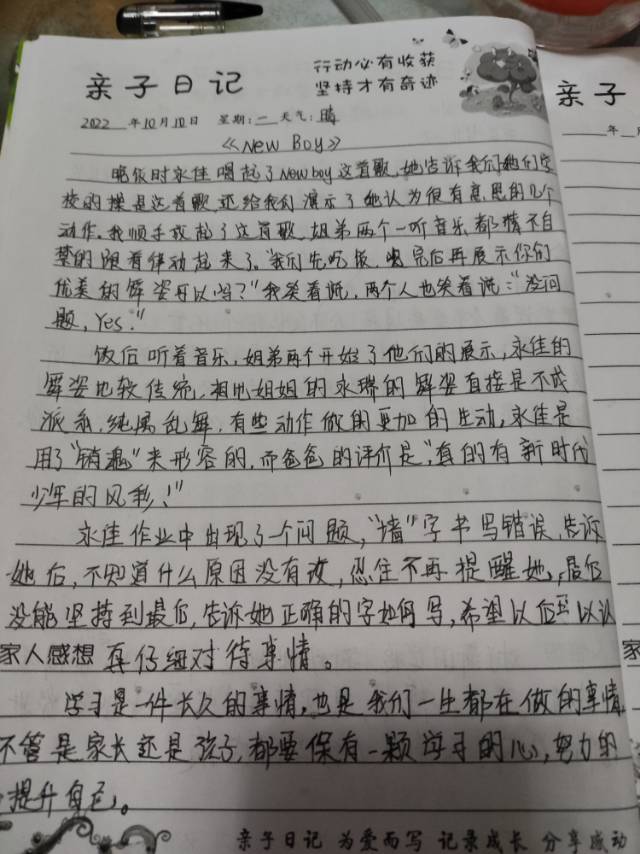 亲子日记
行动必有收获
坚持才有奇迹
亲子
2022年10月10日 星期:一 天气:晴
年
《New Boy》
晚饭时永佳唱起了New boy这首歌,她告诉我们他们学
校的操是这首歌,还给我们演示了她认为很有意思的几个
动作。我顺手放起了这首歌,姐弟两个一听音乐都情不自
禁的跟着律动起来了。"我们先吃饭,吃完后再展示你们
优美的舞姿可以吗?"我笑着说,两个人也笑着说:"没问
题,Yes!"
饭后听着音乐,姐弟两个开始了他们的展示,永佳的
舞姿比较传统,相比姐姐的永瑞的舞姿直接是不成
派系,纯属乱舞,有些动作做的更加的生动,永佳是
用了"销魂"来形容的,而爸爸的评价是,"真的有新时代
少年的风彩!"
永佳作业中出现了一个问题,"情"字书写错误,告诉
她后,不知道什么原因没有改,忍住不再提醒她,最后
没能坚持到最后,告诉她正确的字如何写,希望以后可以认
家人感想 真仔细对待事情。
学习是一件长久的事情,也是我们一生都在做的事情
不管是家长还是孩子,都要保有一颗学习的心,努力的
提升自己。
亲子日记 为爱而写 记录成长 分享感动